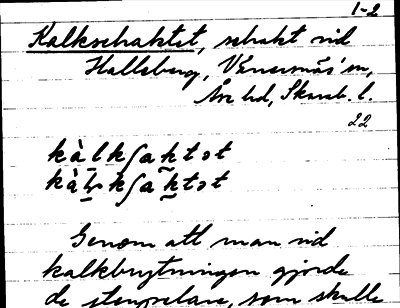 1-2
Kalkschaktet, schakt vid
Halleberg, Vänersnäs' sn,
Åse hd, Skarab. l.
22
kàlkʃaktət
kàkʃaktət
Genom att man vid
kalkbrytningen gjorde
de stenpelare, som skulle